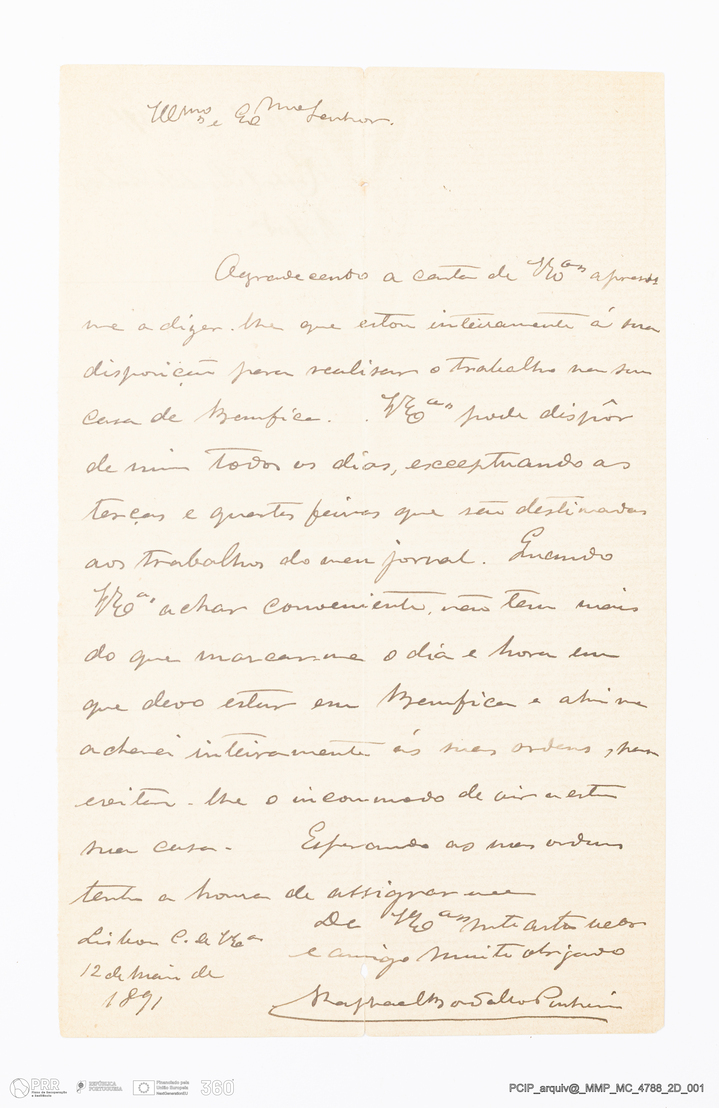 Illmo e Exmo Senhor.
Agradecendo a carta de VExas apresso
me a dizer-lhe que estou inteiramente á sua
disposição para realisar o trabalho na sua
casa de Bemfica. VExas pode dispôr
de mim todos os dias, exceptuando as
terças e quartas feiras que são destinadas
aos trabalhos do meu jornal. Quando
VExas achar conveniente, não tem mais
do que marcar-me o dia e hora em
que devo estar em Bemfica e ahi me
acharei inteiramente ás suas ordens, para
evitar-lhe o incommodo de vir a esta
sua casa- Esperando as suas ordens
tenho a honra de assignar-me
De VExas mto atto venor
e amigo muito obrigado
Lisboa C. de VExa
12 de Maio de
1891
Raphael Bordallo Pinheiro
PRR
Plano de Recuperação
e Resiliência
REPÚBLICA
PORTUGUESA
Financiado pela
União Europeia
NextGenerationEU
360°
PCIP_arquiv@_MMP_MC_4788_2D_001